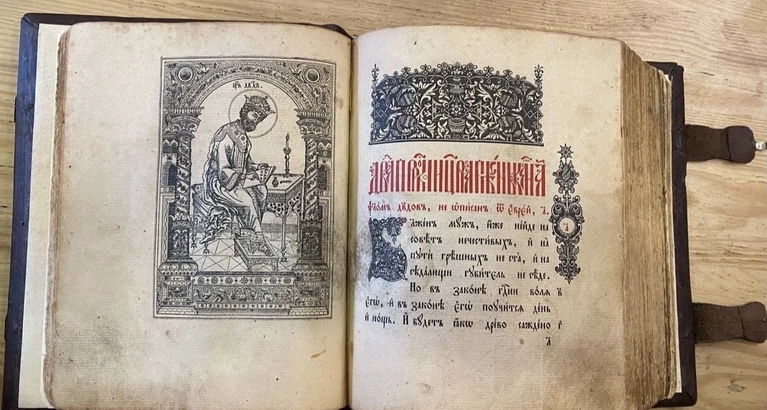 цр҃ь дв҃дъ
Ѱало́мъ дв҃довъ, не ѡ҆писанъ ѿ є҆врє́й, а҃.
Блаже́нъ мꙋ́жъ, и҆́же не и҆́де на
совѣ́тъ нечести́выхъ, и҆ на
пꙋтѝ грѣ́шныхъ не ста̀, и҆ на
сѣда́лищи гꙋби́тель не сѣ́де.
Но въ зако́нѣ гдⷭ҇ни во́лѧ в҃
є҆гѡ̀, и҆ въ зако́нѣ є҆гѡ̀ поꙋчи́тсѧ де́нь
и҆ но́щь. И҆ бꙋ́детъ ꙗ҆́кѡ дре́во саждено̀ г҃